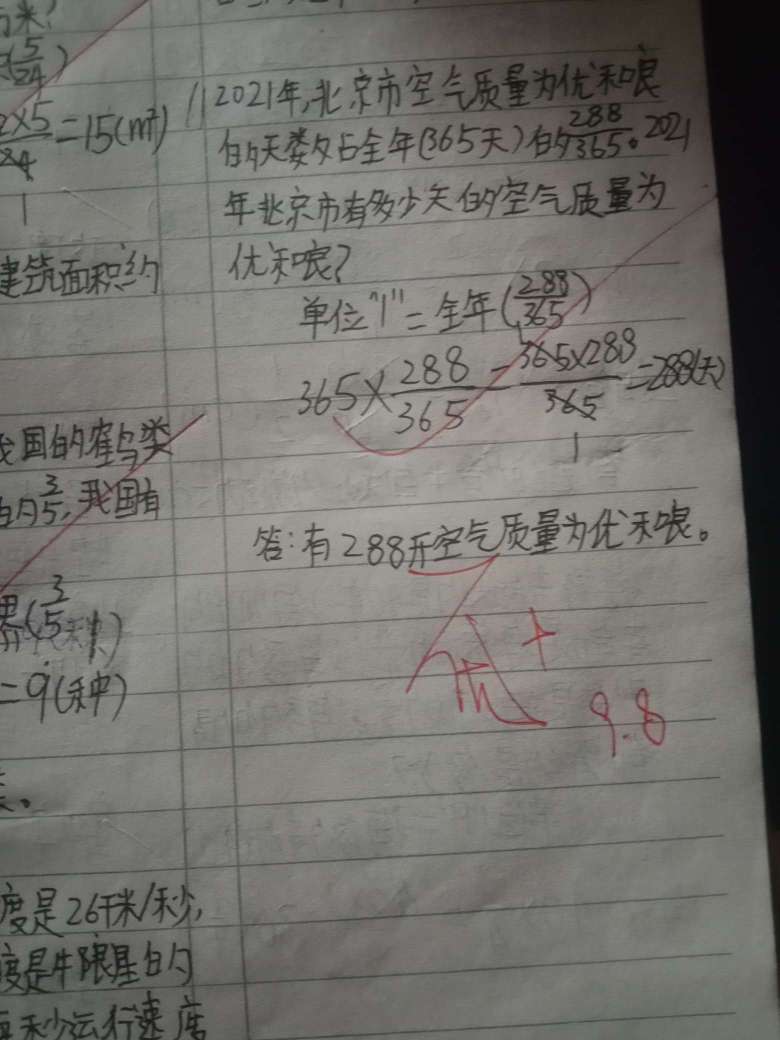 方米?
(5/24)
2×5/24=15(m²)
1
建筑面积约
我国的鹤鸟类
的3/5,我国有
界(3/5)
=9(种)
类。
度是26千米/秒,
度是牛限星的
每秒运行速度
11 2021年,北京市空气质量为优和哴
的天娄夂占全年(365天)的288/365。2021
年北京市有多少天的空气质量为
优和哴?
单位"1"=全年(288/365)
365×288/365=365×288/365=288(天)
1
答:有288天空气质量为优禾哴。
优+
9.8